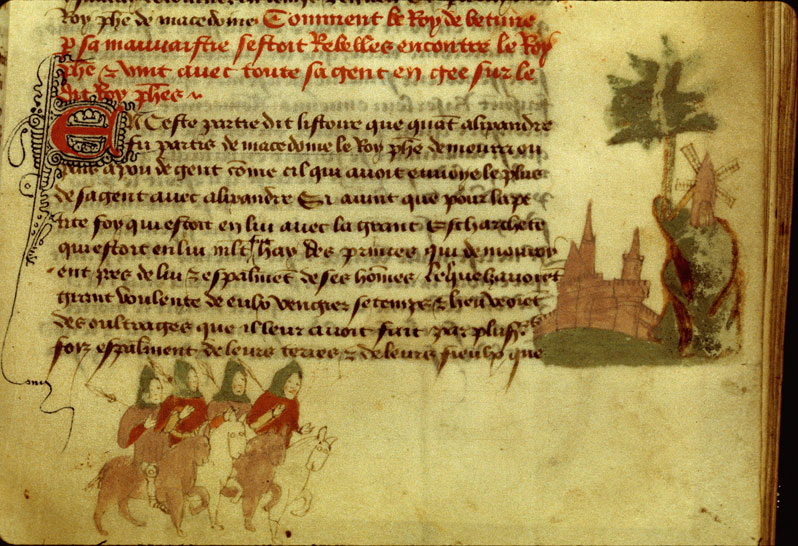 Roy phē de macedome Comment le Roy de betime
p sa mauvaistie sestoit Rebelles encontre le Roy
phē & vint avec toute sa gent en gree sur le
dit Roy phēs
En ceste partie dit listoire que quāt alixandre
fu partis de macedome le Roy phē demoura ou
pais a pou de gent cōme cil qui avoit envoye le plus
de sa gent avec alixandre Si avint que pour la pe
tite foy qui estoit en lui avec la grant escharcete
qui estoit en lui hay des princes qui demouroy
ent pres de lui & espalment de ses hōmes lesquelz avoiēt
grant voulente de eulx vengier se temps & lieu veoiēt
des oultrages que il leur avoit fait par plus
foiz espalment de leurs terres & de leurs fieulx que